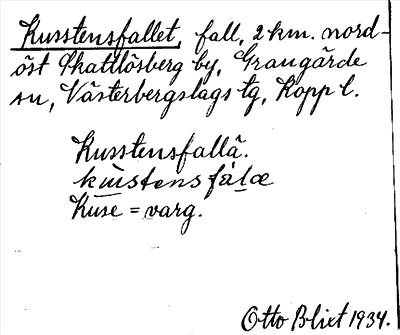 Kusstensfallet, fall, 2 km. nord-
öst Skattlösberg by, Grangärde
sn, Västerbergslags tg, Kopp l.
Kusstensfallä.
Kuse = varg.
Otto Blixt 1934.